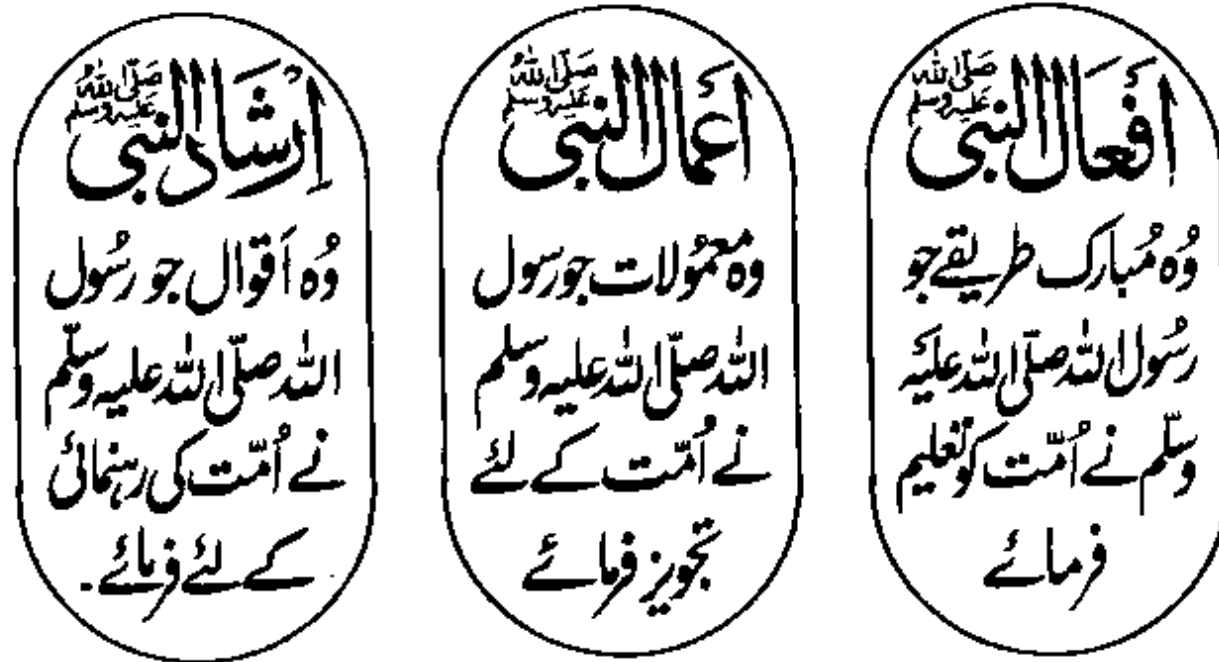 اَفْعَالُ النبی صَلَّی اللہُ عَلَیْہِ وَسَلَّم
وُہ مُبارک طریقے جو
رسُول اللہ صلّی اللہ علیہ
وسلّم نے اُمّت کو تعلیم
فرمائے
اَعمال النبی صَلَّی اللہُ عَلَیْہِ وَسَلَّم
وہ معمُولات جو رسول
اللہ صلّی اللہ علیہ وسلم
نے اُمّت کے لئے
تجویز فرمائے
اِرْشَادُ النبی صَلَّی اللہُ عَلَیْہِ وَسَلَّم
وُہ اَقوال جو رسُول
اللہ صلّی اللہ علیہ وسلّم
نے اُمّت کی رہنمائی
کے لئے فرمائے۔